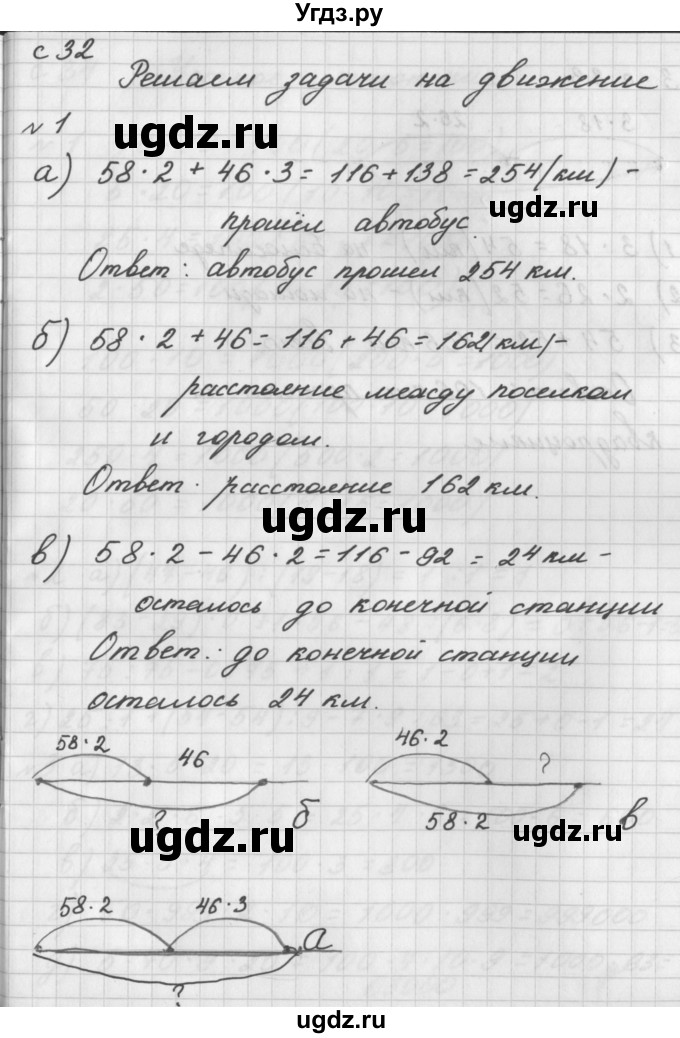 Угдз.ру
с 32
Решаем задачи на движение
№1
ugdz.ru
а) 58·2 + 46·3 = 116 + 138 = 254 (км) -
ugdz.ru
прошёл автобус
Ответ: автобус прошел 254 км.
б) 58·2 + 46 = 116 + 46 = 162(км)-
расстояние между поселком
и городом.
Ответ. расстояние 162 км.
ugdz.ru
в) 58·2 - 46·2 = 116 - 92 = 24 км -
осталось до конечной станции
Ответ: до конечной станции
осталось 24 км.
58·2 46
46·2 ?
? б
58·2 в
ugdz.ru
ugdz.ru
58·2 46·3 а
?
ugdz.ru